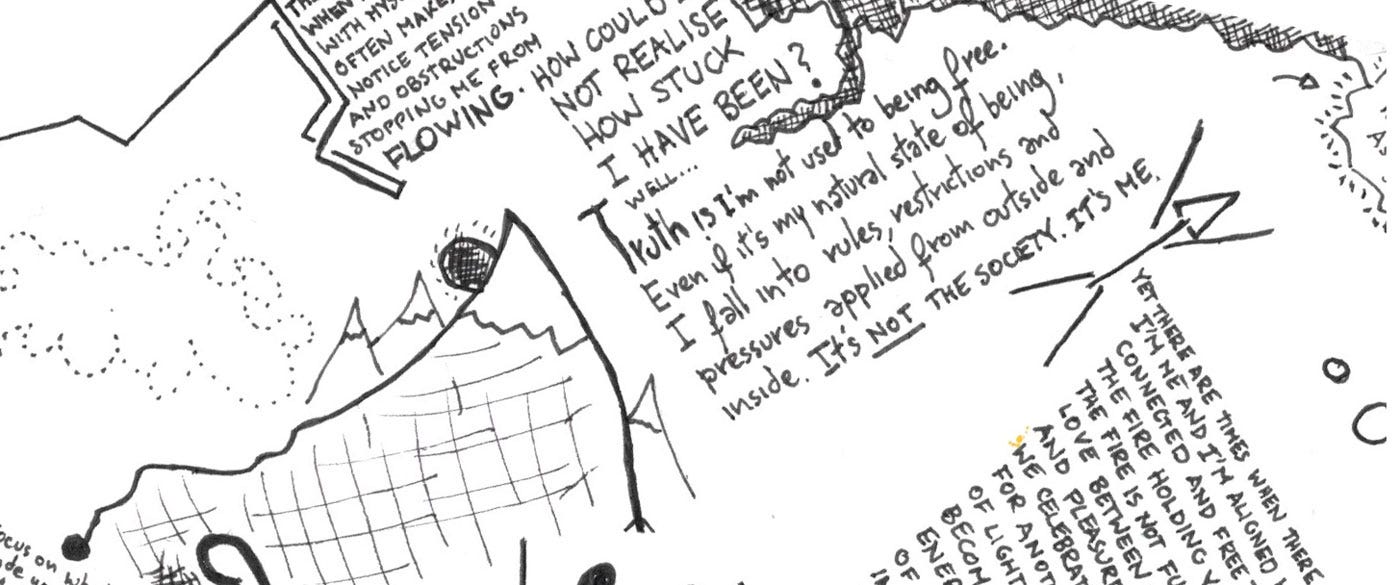 WHEN
WITH MYS
OFTEN MAKES
NOTICE TENSION
AND OBSTRUCTIONS
STOPPING ME FROM
FLOWING. HOW COULD
NOT REALISE
HOW STUCK
I HAVE BEEN?
WELL...
Truth is I'm not used to being free.
Even if it's my natural state of being,
I fall into rules, restrictions and
pressures applied from outside and
inside. It's NOT THE SOCIETY. IT'S ME.
YET THERE ARE TIMES WHEN THERE
I'M ME AND I'M ALIGNED
CONNECTED AND FREE
THE FIRE HOLDING
THE FIRE IS NOT FU
LOVE BETWEEN
AND PLEASURE
WE CELEBRAT
FOR ANOT
OF LIGHT
BECOM
ENER
OF
IN
ocus on wh